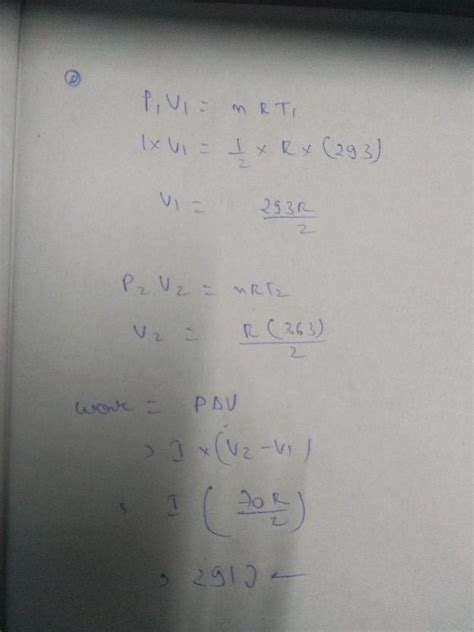 P₁V₁ = nRT₁
1×V₁ = 1/2 × R × (293)
V₁ = 293R/2
P₂V₂ = nRT₂
V₂ = R(363)/2
work = PΔV
, 1 × (V₂ - V₁)
, 1 (70R/2)
, 291J ←